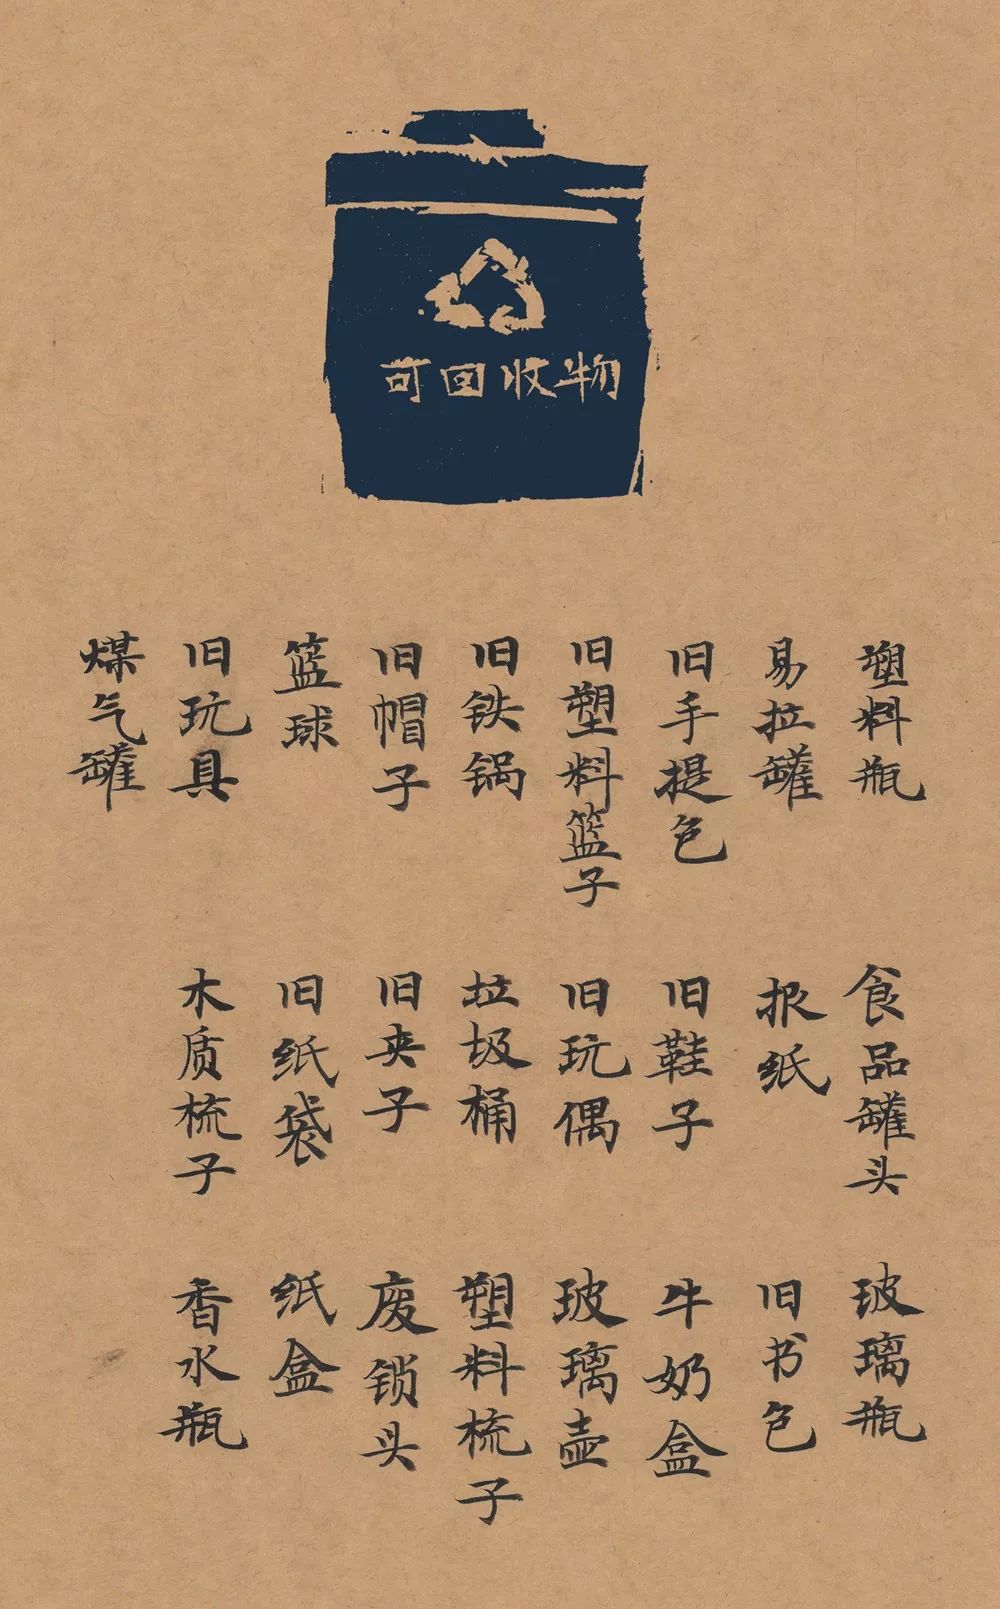 可回收物
塑料瓶
易拉罐
旧手提包
旧塑料篮子
旧铁锅
旧帽子
篮球
旧玩具
煤气罐
食品罐头
报纸
旧鞋子
旧玩偶
垃圾桶
旧夹子
旧纸袋
木质梳子
玻璃瓶
旧书包
牛奶盒
玻璃壶
塑料梳子
废锁头
纸盒
香水瓶